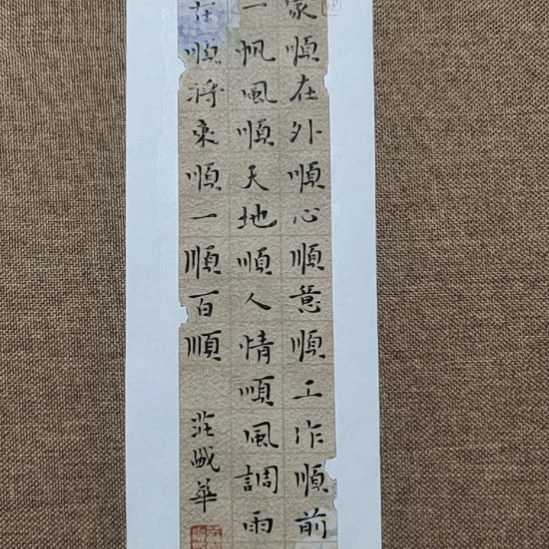 家順在外順心順意順工作順前
一帆風順天地順人情順風調雨
在順将来順一順百順 莊
華